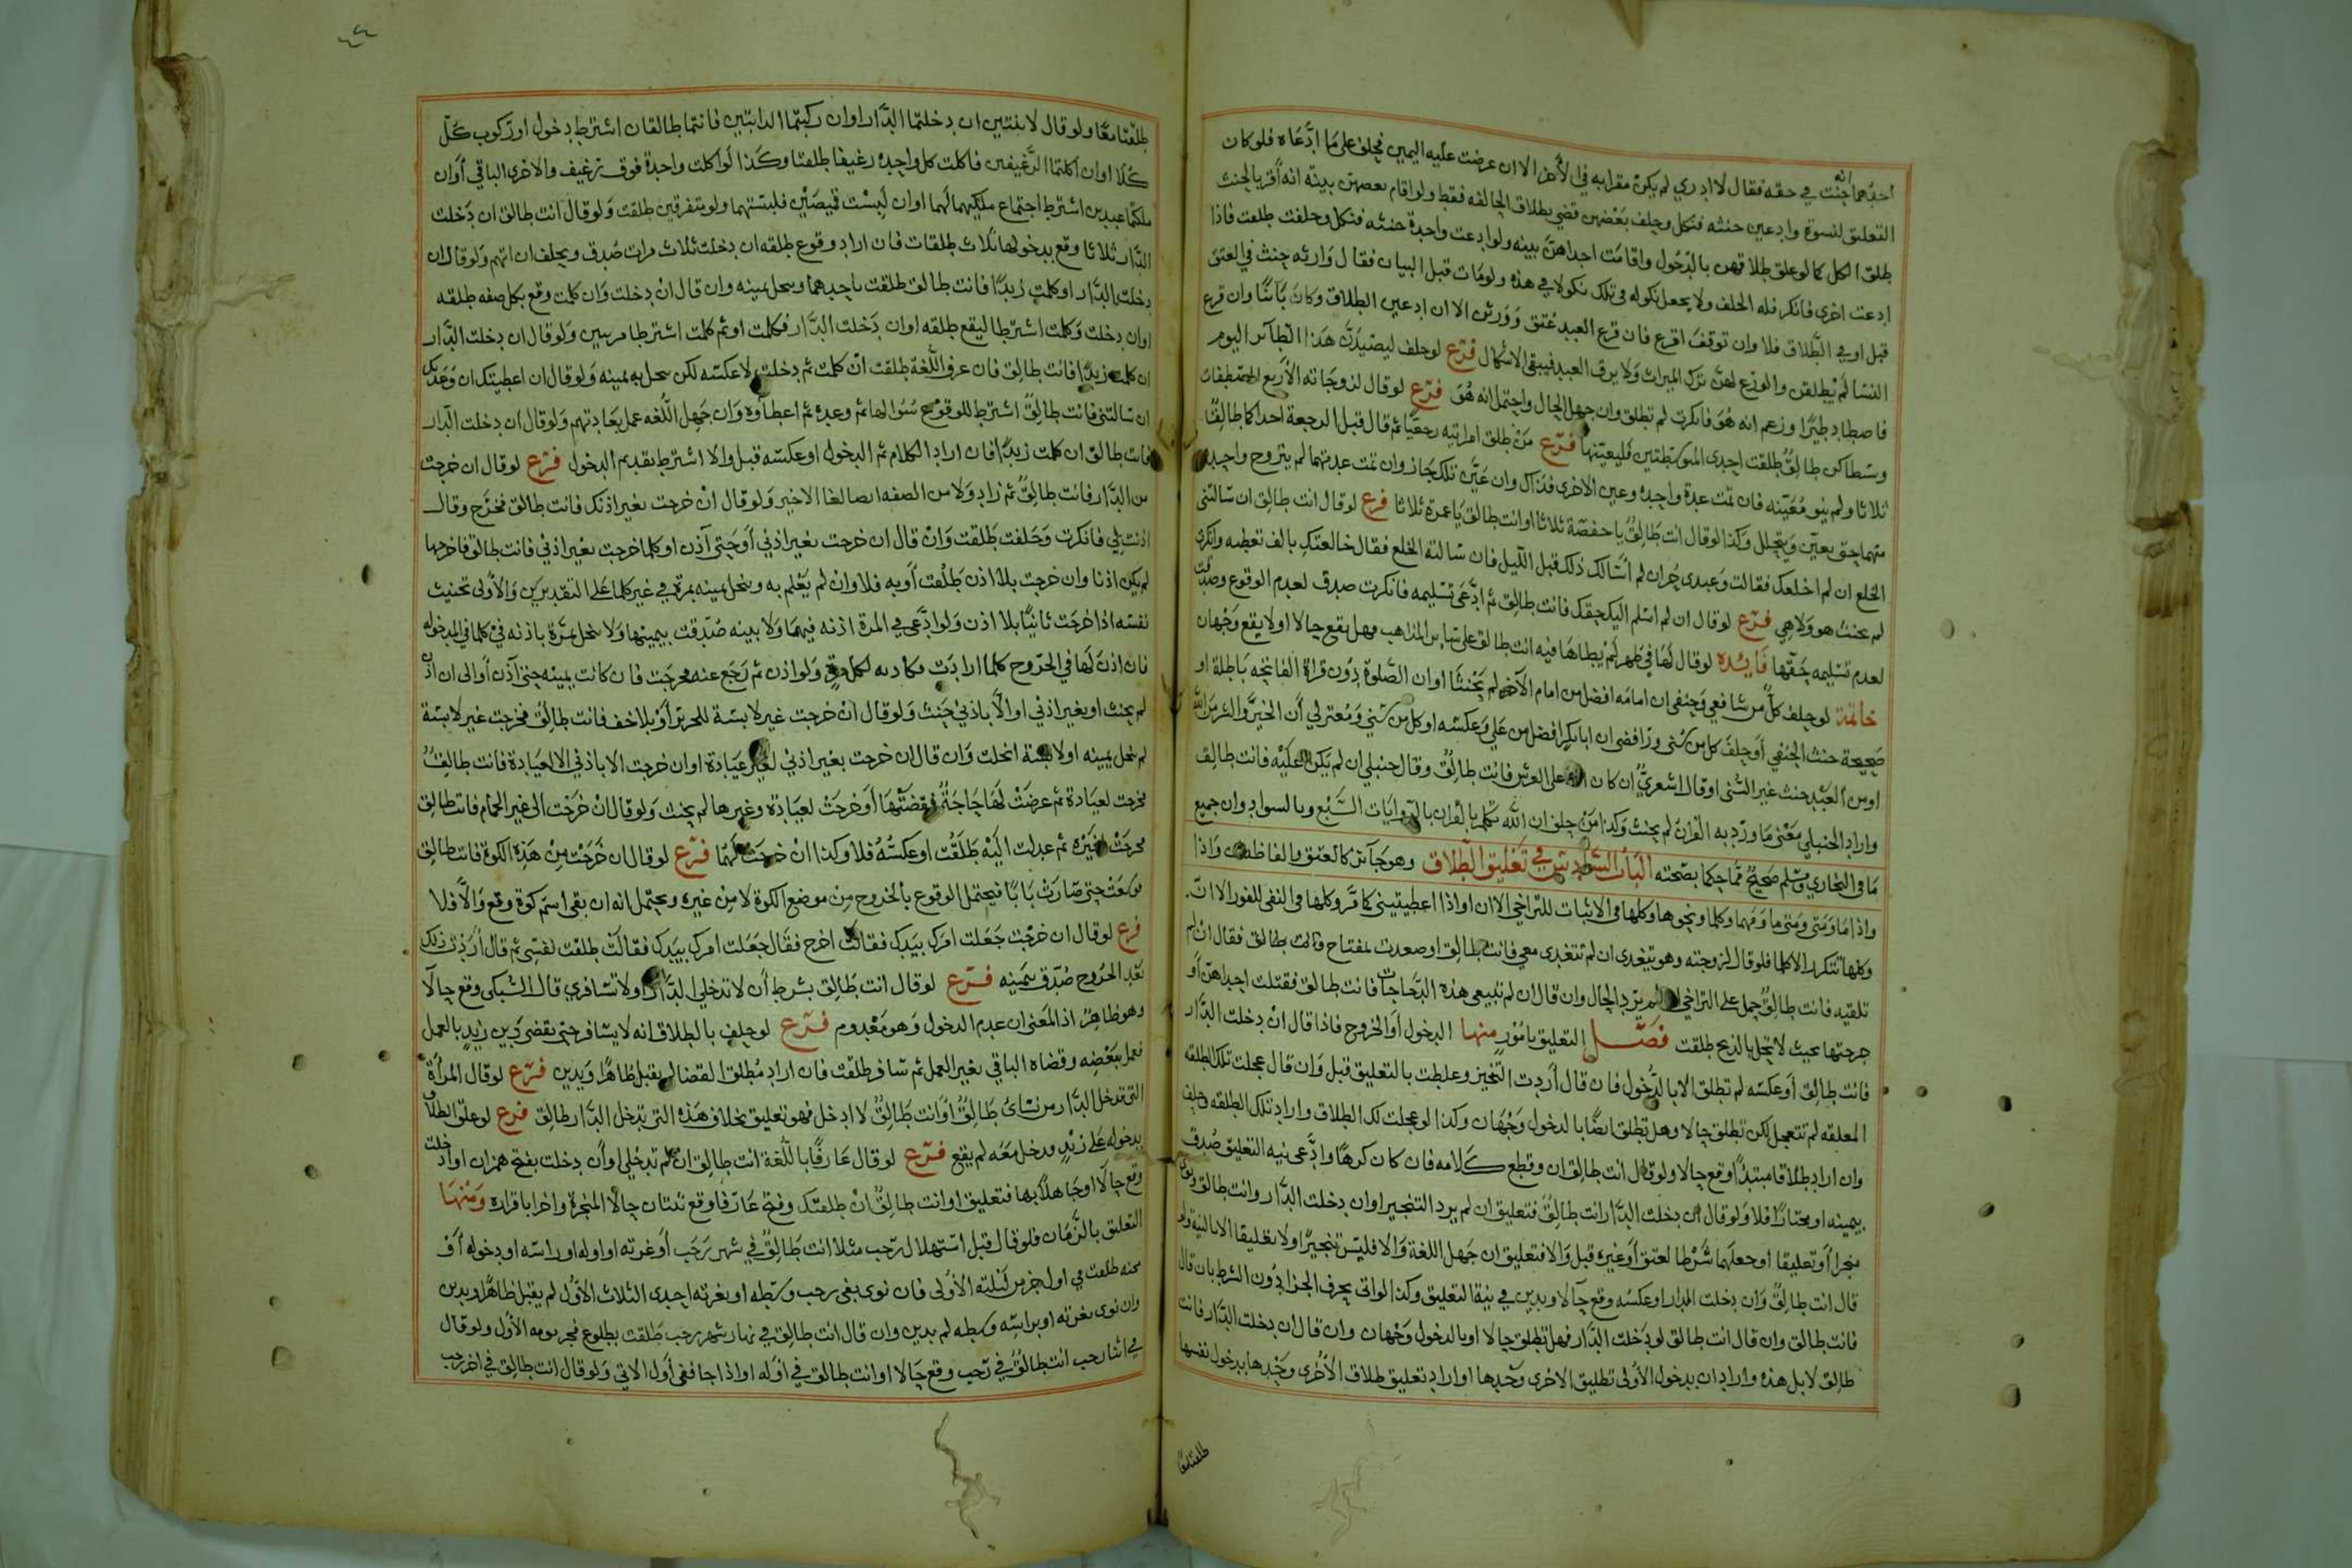 احدهما انه حنث في حقه فقال لا ادري لم يكن مقرا به في الأخر الا ان عرضت عليه اليمين فحلف على ما ادعاه فلو كان
التعليق لنسوة وادعين حنثه فنكل وحلف بعضهن قضي بطلاق الحالفه فقط ولو اقام بعضهن بينة انه أقر بالحنث
طلق الكل كما لو علق طلاقهن بالدخول واقامت احداهن بينه ولو ادعت واحدة حنثه فنكل وحلفت طلقت فاذا
ادعت اخرى فانكر فله الحلف ولا يجعل نكوله في تلك نكولا في هذه ولو مات قبل البيان فقال وارثه حنث في العتق
قبل او في الطلاق فلا وان توقف اقرع فان قرع العبد عتق وورثن الا ان ادعين الطلاق وكان بائنًا وان قرع
النسا لم يطلقن والورع لهن ترك الميراث ولا يرق العبد فيبقى الاشكال فرع لو حلف ليصيدن هذا الطائر اليوم
فاصطاد طيرًا وزعم انه هو فانكرت لم تطلق وان جهل الحال واحتمل انه هو فرع لو قال لزوجاته الأربع المصطفات
وسطاكن طالق طلقت احدى المتوسطتين فليعينها فرع من طلق امراتيه رجعيًا ثم قال قبل الرجعة احداكما طالق
ثلاثا ولم ينو معينه فان تمت عدة واحدة وعين الاخرى فذاك وان عين تلك جاز وان تمت عدتهما لم يتزوج واحدة
منهما حتى يعين ويتحلل وكذا لو قال انت طالق يا حفصة ثلاثا او انت طالق يا عمرة ثلاثا فرع لو قال انت طالق ان سالتني
الخلع ان لم اخلعك فقالت وعبدي حر ان لم اسالك ذلك قبل الليل فان سالته الخلع فقال خالعتك بالف تعطيه وانكرت
لم يحنث هو ولا هي فرع لو قال ان لم اسلم اليك حقك فانت طالق ثم ادعى تسليمه فانكرت صدق لعدم الوقوع وصدقت
لعدم تسليمه حقها فايده لو قال لها في طهر لم يطاها فيه انت طالق على سائر المذاهب فهل يقع حالا اولا يقع وجهان
خاتمة لو حلف كل من شافعي وحنفي ان امامه افضل من امام الآخر لم يحنثا او ان الصلوة بدون قراة الفاتحه باطلة او
صحيحة حنث الحنفي أو حلف كل من سني ورافضي ان ابا بكر افضل من علي وعكسه او كل من سني ومعتزلي أن الخير والشر من الله
او من العبد حنث غير السني او قال اشعري ان كان الله على العرش فانت طالق وقال حنبلي ان لم يكن عليه فانت طالق
واراد الحنبلي معنى ما ورد به القران لم يحنث وكذا من حلف ان الله تكلم بالقران بالروايات السبع وبالسواد وان جميع
ما في البخاري ومسلم صحيح مما حكما بصحته الباب السادس في تعليق الطلاق وهو جائز كالعتق والفاظه ان واذا
واذا ما ومتى ومتى ما ومهما وكلما ونحوها وكلها في الاثبات للتراخي الا ان او اذا اعطيتيني كما مر وكلها في النفي للفور الا ان
وكلها تتكرر الا كلما فلو قال لزوجته وهو يتغدى ان لم تتغدي معي فانت طالق او صعدت لمفتاح فانت طالق فقال ان لم
تلقيه فانت طالق حمل على التراخي ان لم يرد الحال وان قال ان لم تبيعي هذه الدجاجات فانت طالق فقتلت احداهن أو
جرحتها بحيث لا تحل بالذبح طلقت فصل التعليق بامور منها الدخول أو الخروج فاذا قال ان دخلت الدار
فانت طالق أو عكسه لم تطلق الا بالدخول فان قال أردت التنجيز وغلطت بالتعليق قبل وان قال عجلت تلك الطلقه
المعلقه لم تتعجل لكن تطلق حالا وهل تطلق ايضًا بالدخول وجهان وكذا لو عجلت لك الطلاق واراد تلك الطلقه حلف
وان اراد طلاقا مبتدأ وقع حالا ولو قال انت طالق ان وقطع كلامه فان كان كرهًا وادعى نيه التعليق صدق
بيمينه او مختارًا فلا ولو قال ان دخلت الدار انت طالق فتعليق ان لم يرد التنجيز او ان دخلت الدار وانت طالق ونوى
منجزا أو تعليقا او جعلهما شرطا لعتق أو غيره قبل والا فتعليق ان جهل اللغة والا فليس تنجيزًا ولا تعليقا الا بالنية ولو
قال انت طالق وان دخلت الدار او عكسه وقع حالا ويدين في نية التعليق وكذا لو اتى بحرف الجزا دون الشرط بان قال
فانت طالق وان قال انت طالق لو دخلت الدار فهل تطلق حالا او بالدخول وجهان وان قال ان دخلت الدار فانت
طالق لا بل هذه واراد ان بدخول الأولى تطليق الاخرى وحدها او اراد تعليق طلاق الأخرى وحدها بدخول نفسها
طلقتا معًا
٤٤
طلقتا معًا ولو قال لاثنتين ان دخلتما الدار او ان ركبتما الدابتين فانتما طالقان اشترط دخول او ركوب كل
كلا او ان اكلتما الرغيفين فاكلت كل واحدة رغيفا طلقتا وكذا لو اكلت واحدة فوق رغيف والاخرى الباقي أو ان
ملكتما عبدين اشترط اجتماع ملكيهما لهما او ان لبست قميصين فلبستهما ولو متفرقين طلقت ولو قال انت طالق ان دخلت
الدار ثلاثا وقع بدخولها ثلاث طلقات فان اراد وقوع طلقه ان دخلت ثلاث مرات صدق ويحلف ان اتهم ولو قال ان
دخلت الدار او كلمت زيدًا فانت طالق طلقت باحدهما وتنحل يمينه وان قال ان دخلت وان كلمت وقع بكل صفه طلقه
او ان دخلت وكلمت اشترطا ليقع طلقه او ان دخلت الدار فكلمت او ثم كلمت اشترطا مرتبين ولو قال ان دخلت الدار
ان كلمت زيدًا فانت طالق فان عرف اللغة طلقت ان كلمت ثم دخلت لا عكسه لكن تنحل به يمينه ولو قال ان اعطيتك ان وعدتك
ان سالتني فانت طالق اشترط للوقوع سؤالها ثم وعده ثم اعطاؤه وان جهل اللغه عمل بعادتهم ولو قال ان دخلت الدار
فانت طالق ان كلمت زيدًا فان اراد الكلام ثم الدخول او عكسه قبل والا اشترط تقديم الدخول فرع لو قال ان خرجت
من الدار فانت طالق ثم زاد ولا من الصفه ايضا لغا الاخير ولو قال ان خرجت بغير اذنك فانت طالق فخرج وقال
اذنت لي فانكرت وحلفت طلقت وان قال ان خرجت بغير اذني أو حتى آذن او كلما خرجت بغير اذني فانت طالق فاخرجها
لم يكن اذنا وان خرجت بلا اذن طلقت أو به فلا وان لم يعلم به وتنحل يمينه بمرة في غير كلما على التقديرين والأولى تحنيث
نفسه اذا خرجت ثانيًا بلا اذن ولو ادعى في المرة اذنه فيهما ولا بينه صدقت بيمينها ولا تنحل بمرة باذنه في كلما في المدخوله
فان اذن لها في الخروج كلما ارادت فكاذنه لكل مرة ولو اذن ثم رجع عنه فخرجت فان كانت يمينه حتى آذن أو الى ان اذن
لم يحنث او بغير اذني او الا باذني حنث ولو قال ان خرجت غير لابسة للحرير أو بلا خف فانت طالق فخرجت غير لابسة
لم تنحل يمينه او لابسة انحلت وان قال ان خرجت بغير اذني لغير عيادة او ان خرجت الا باذني الا لعيادة فانت طالق
فخرجت لعيادة ثم عرضت لها حاجة فقضتها أو خرجت لعيادة وغيرها لم يحنث ولو قال ان خرجت الى غير الحمام فانت طالق
فخرجت لغيره ثم عدلت اليه طلقت او عكسه فلا وكذا ان خرجت لهما فرع لو قال ان خرجت من هذه الكوة فانت طالق
فوسعت حتى صارت بابًا فيحتمل الوقوع بالخروج من موضع الكوة لا من غيره ويحتمل انه ان بقى اسم كوة وقع والا فلا
فرع لو قال ان خرجت جعلت امرك بيدك فقالت اخرج فقال جعلت امرك بيدك فقالت طلقت نفسي ثم قال أردت ذلك
بعد الخروج صدق بيمينه فرع لو قال انت طالق بشرط أن لا تدخلي الدار او لا تسافري قال السبكي وقع حالا
وهو ظاهر اذ المعنى ان عدم الدخول وهو معدوم فرع لو حلف بالطلاق انه لا يسافر حتى يقضي دين زيد بالعمل
فعمل ببعضه وقضاه الباقي بغير العمل ثم سافر طلقت فان اراد مطلق القضا لم يقبل ظاهرًا ويدين فرع لو قال المرأة
التي تدخل الدار من نسائي طالق أو انت طالق لا ادخل فهو تعليق بخلاف هذه التي تدخل الدار طالق فرع لو علق الطلاق
بدخوله على زيد ودخل معه لم يقع فرع لو قال عارفًا باللغة انت طالق ان لم تدخلي أو أن دخلت بفتح همز ان او اذ دخلت
وقع حالا او جاهلا بها فتعليق او انت طالق ان طلقتك وفتح عارفا وقع ثنتان حالا المنجزة واخرا باقراره ومنها
التعليق بالزمان فلو قال قبل استهلال رجب مثلا انت طالق في شهر رجب أو غرته او اوله او راسه او دخوله أو
مجيئه طلقت في اول جزء من ليلته الأولى فان نوى بفي رجب وسطه او بغرته احدى الثلاث الأول لم يقبل ظاهرًا ويدين
وان نوى بغرته او براسه وسطه لم يدين وان قال انت طالق في نهار شهر رجب طلقت بطلوع فجر يومه الأول ولو قال
في اثنا رجب انت طالق في رجب وقع حالا او انت طالق في أوله او اذا جا ففي أول الاتي ولو قال انت طالق في اخر رجب